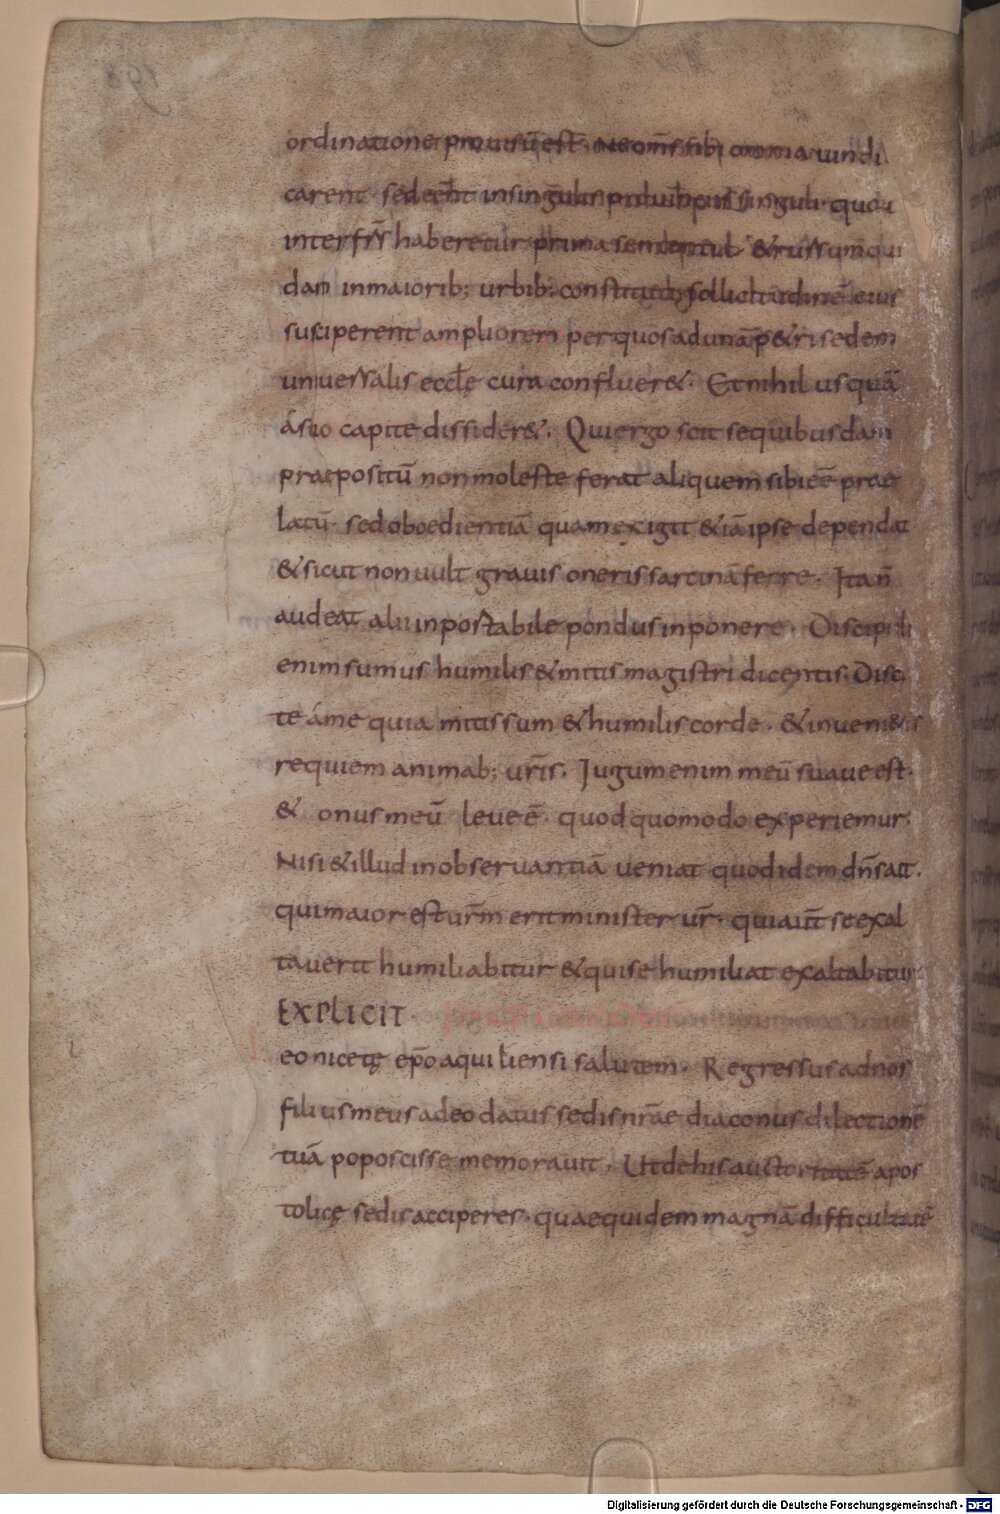 ordinatione prouisū est. Ne om̄s sibi omnia uindi
carent. sed eēnt in singulis prouinciis singuli. quoru
inter fr̄s haberetur prima sententia. & rursum qui
dam in maiorib; urbib; constituti sollicitudinē eius
susciperent ampliorem per quos ad unā p&ri sedem
uniuersalis eccłę cura conflueret&. Et nihil usquā
á suo capite dissider&. Qui ergo scit se quibusdam
praepositū non moleste ferat aliquem sibi eē prae
latū. sed oboedientiā quam exigit &iā ipse dependat
& sicut non uult grauis oneris sarcinā ferre. Ita n̄
audeat alii inportabile pondus inponere. Discipuli
enim sumus humilis & mitis magistri dicentis. Disci
te á me quia mitis sum & humilis corde. & inueni&is
requiem animab; ur̄is. Jugum enim meū suaue est.
& onus meū leue ē. quod quomodo experiemur.
Nisi & illud in obseruantiā ueniat quod idem dn̄s ait.
qui maior est ur̄m erit minister ur̄. qui aūt se exal
tauerit humiliabitur & qui se humiliat exaltabitur
EXPLICIT.
eo nicetę ep̄o aquiliensi salutem. Regressus ad nos
filius meus adeodatus sedis nr̄ae diaconus dilectionē
tuā poposcisse memorauit. Ut de his auctoritatē apos
tolicę sedis acciperes. quae quidem magnā difficultatē
Digitalisierung gefördert durch die Deutsche Forschungsgemeinschaft - DFG